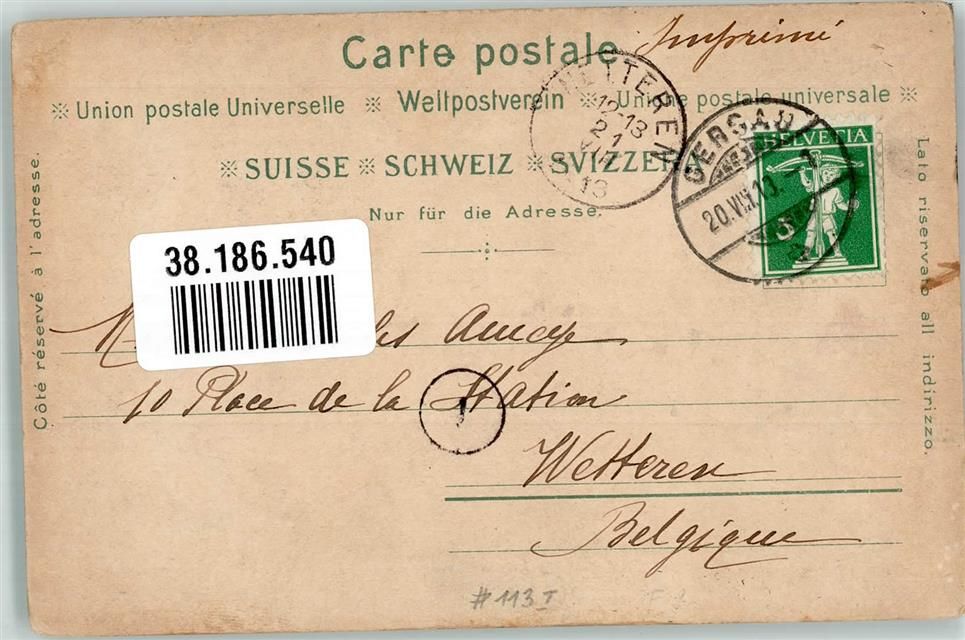 Carte postale
Imprimé
Union postale Universelle Weltpostverein Unione postale universale
SUISSE SCHWEIZ SVIZZERA
Nur für die Adresse.
WETTEREN
12-13
21
VII
13
GERSAU
20.VIII.13.
HELVETIA
5
Côté réservé à l'adresse.
Lato riservato all indirizzo.
38.186.540
10 Place de la Station
Wetteren
Belgique
1
#113 I